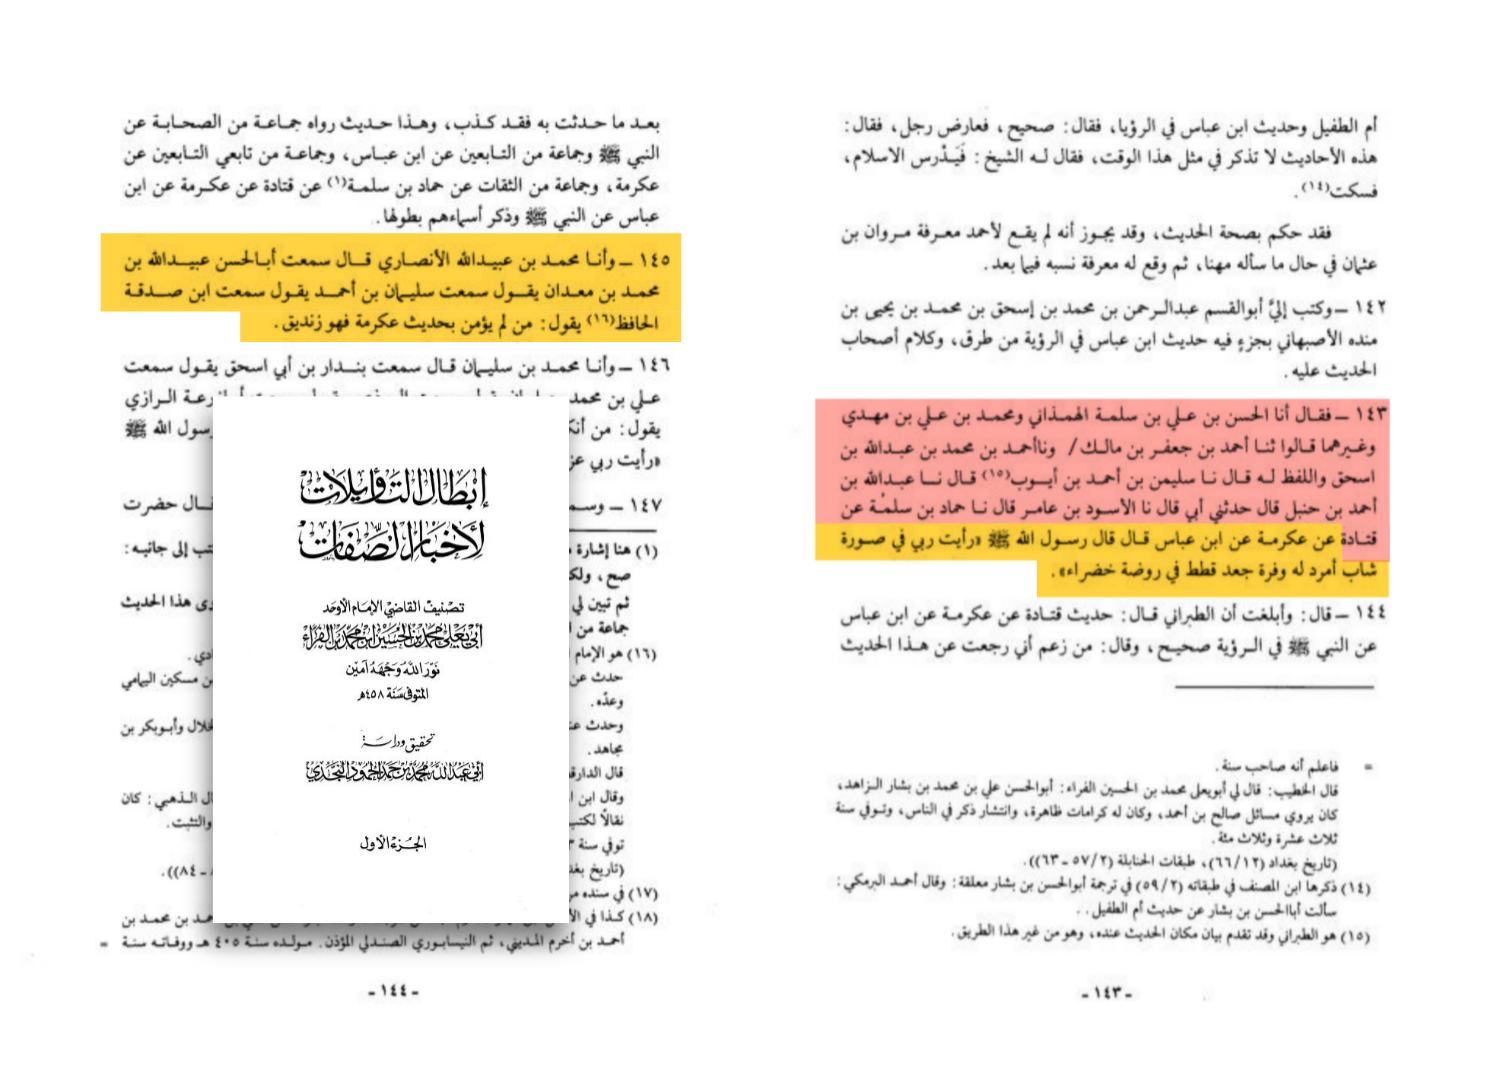 أم الطفيل وحديث ابن عباس في الرؤيا، فقال: صحيح، فعارض رجل، فقال:
هذه الأحاديث لا تذكر في مثل هذا الوقت، فقال له الشيخ: فَيَدْرس الاسلام،
فسكت(١٤).
فقد حكم بصحة الحديث، وقد يجوز أنه لم يقع لأحمد معرفة مروان بن
عثمان في حال ما سأله مهنا، ثم وقع له معرفة نسبه فيما بعد.
١٤٢ ــ وكتب إليَّ أبوالقسم عبدالرحمن بن محمد بن إسحق بن محمد بن يحيى بن
منده الأصبهاني بجزءٍ فيه حديث ابن عباس في الرؤية من طرق، وكلام أصحاب
الحديث عليه.
١٤٣ ــ فقال أنا الحسن بن علي بن سلمة الهمذاني ومحمد بن علي بن مهدي
وغيرهما قالوا ثنا أحمد بن جعفر بن مالك/ وناأحمد بن محمد بن عبدالله بن
اسحق واللفظ له قال نا سليمن بن أحمد بن أيوب(١٥) قال نا عبدالله بن
أحمد بن حنبل قال حدثني أبي قال نا الأسود بن عامر قال نا حماد بن سلمة عن
قتادة عن عكرمة عن ابن عباس قال قال رسول الله ﷺ «رأيت ربي في صورة
شاب أمرد له وفرة جعد قطط في روضة خضراء».
١٤٤ ــ قال: وأبلغت أن الطبراني قال: حديث قتادة عن عكرمة عن ابن عباس
عن النبي ﷺ في الرؤية صحيح، وقال: من زعم أني رجعت عن هذا الحديث
= فاعلم أنه صاحب سنة.
قال الخطيب: قال لي أبويعلى محمد بن الحسين الفراء: أبوالحسن علي بن محمد بن بشار الزاهد،
كان يروي مسائل صالح بن أحمد، وكان له كرامات ظاهرة، وانتشار ذكر في الناس، وتوفي سنة
ثلاث عشرة وثلاث مئة.
(تاريخ بغداد (٦٦/١٢)، طبقات الحنابلة (٥٧/٢ ــ ٦٣)).
(١٤) ذكرها ابن المصنف في طبقاته (٥٩/٢) في ترجمة أبوالحسن بن بشار معلقة: وقال أحمد البرمكي:
سألت أباالحسن بن بشار عن حديث أم الطفيل..
(١٥) هو الطبراني وقد تقدم بيان مكان الحديث عنده، وهو من غير هذا الطريق.
- ١٤٣ -
بعد ما حدثت به فقد كذب، وهذا حديث رواه جماعة من الصحابة عن
النبي ﷺ وجماعة من التابعين عن ابن عباس، وجماعة من تابعي التابعين عن
عكرمة، وجماعة من الثقات عن حماد بن سلمة(١) عن قتادة عن عكرمة عن ابن
عباس عن النبي ﷺ وذكر أسماءهم بطولها.
١٤٥ ــ وأنا محمد بن عبيدالله الأنصاري قال سمعت أبالحسن عبيدالله بن
محمد بن معدان يقول سمعت سليمان بن أحمد يقول سمعت ابن صدقة
الحافظ(١٦) يقول: من لم يؤمن بحديث عكرمة فهو زنديق.
١٤٦ ــ وأنا محمد بن سليمان قال سمعت بندار بن أبي اسحق يقول سمعت
علي بن محمد رعة الرازي
يقول: من أنك رسول الله ﷺ
«رأيت ربي عز
١٤٧ ــ وسم قال حضرت
(١) هنا إشارة كتب إلى جانبه:
صح، ولك
ثم تبين لي وى هذا الحديث
جماعة من
(١٦) هو الإمام ادي.
حدث عن ن مسكين اليمامي
وعدّه.
وحدث عن لخلال وأبوبكر بن
مجاهد.
قال الدارق
وقال ابن ال الذهبي: كان
نقالًا لكتب والتثبت.
توفي سنة ٣
(تاريخ بغد ــ ٨٤)).
(١٧) في سنده
(١٨) كذا في الأ حمد بن محمد بن
أحمد بن أخرم المديني، ثم النيسابوري الصندلي المؤذن. مولده سنة ٤٠٥ هـ ووفاته سنة =
- ١٤٤ -
إبطال التأويلات
لأخبار الصفات
تصنيف القاضي الإمام الأوحد
أبي يعلى محمد بن الحسين ابن محمد بن الفراء
نور الله وجهه آمين
المتوفى سنة ٤٥٨هـ
تحقيق ودراسة
أبي عبد الله محمد بن حمد الحمود النجدي
الجزء الأول